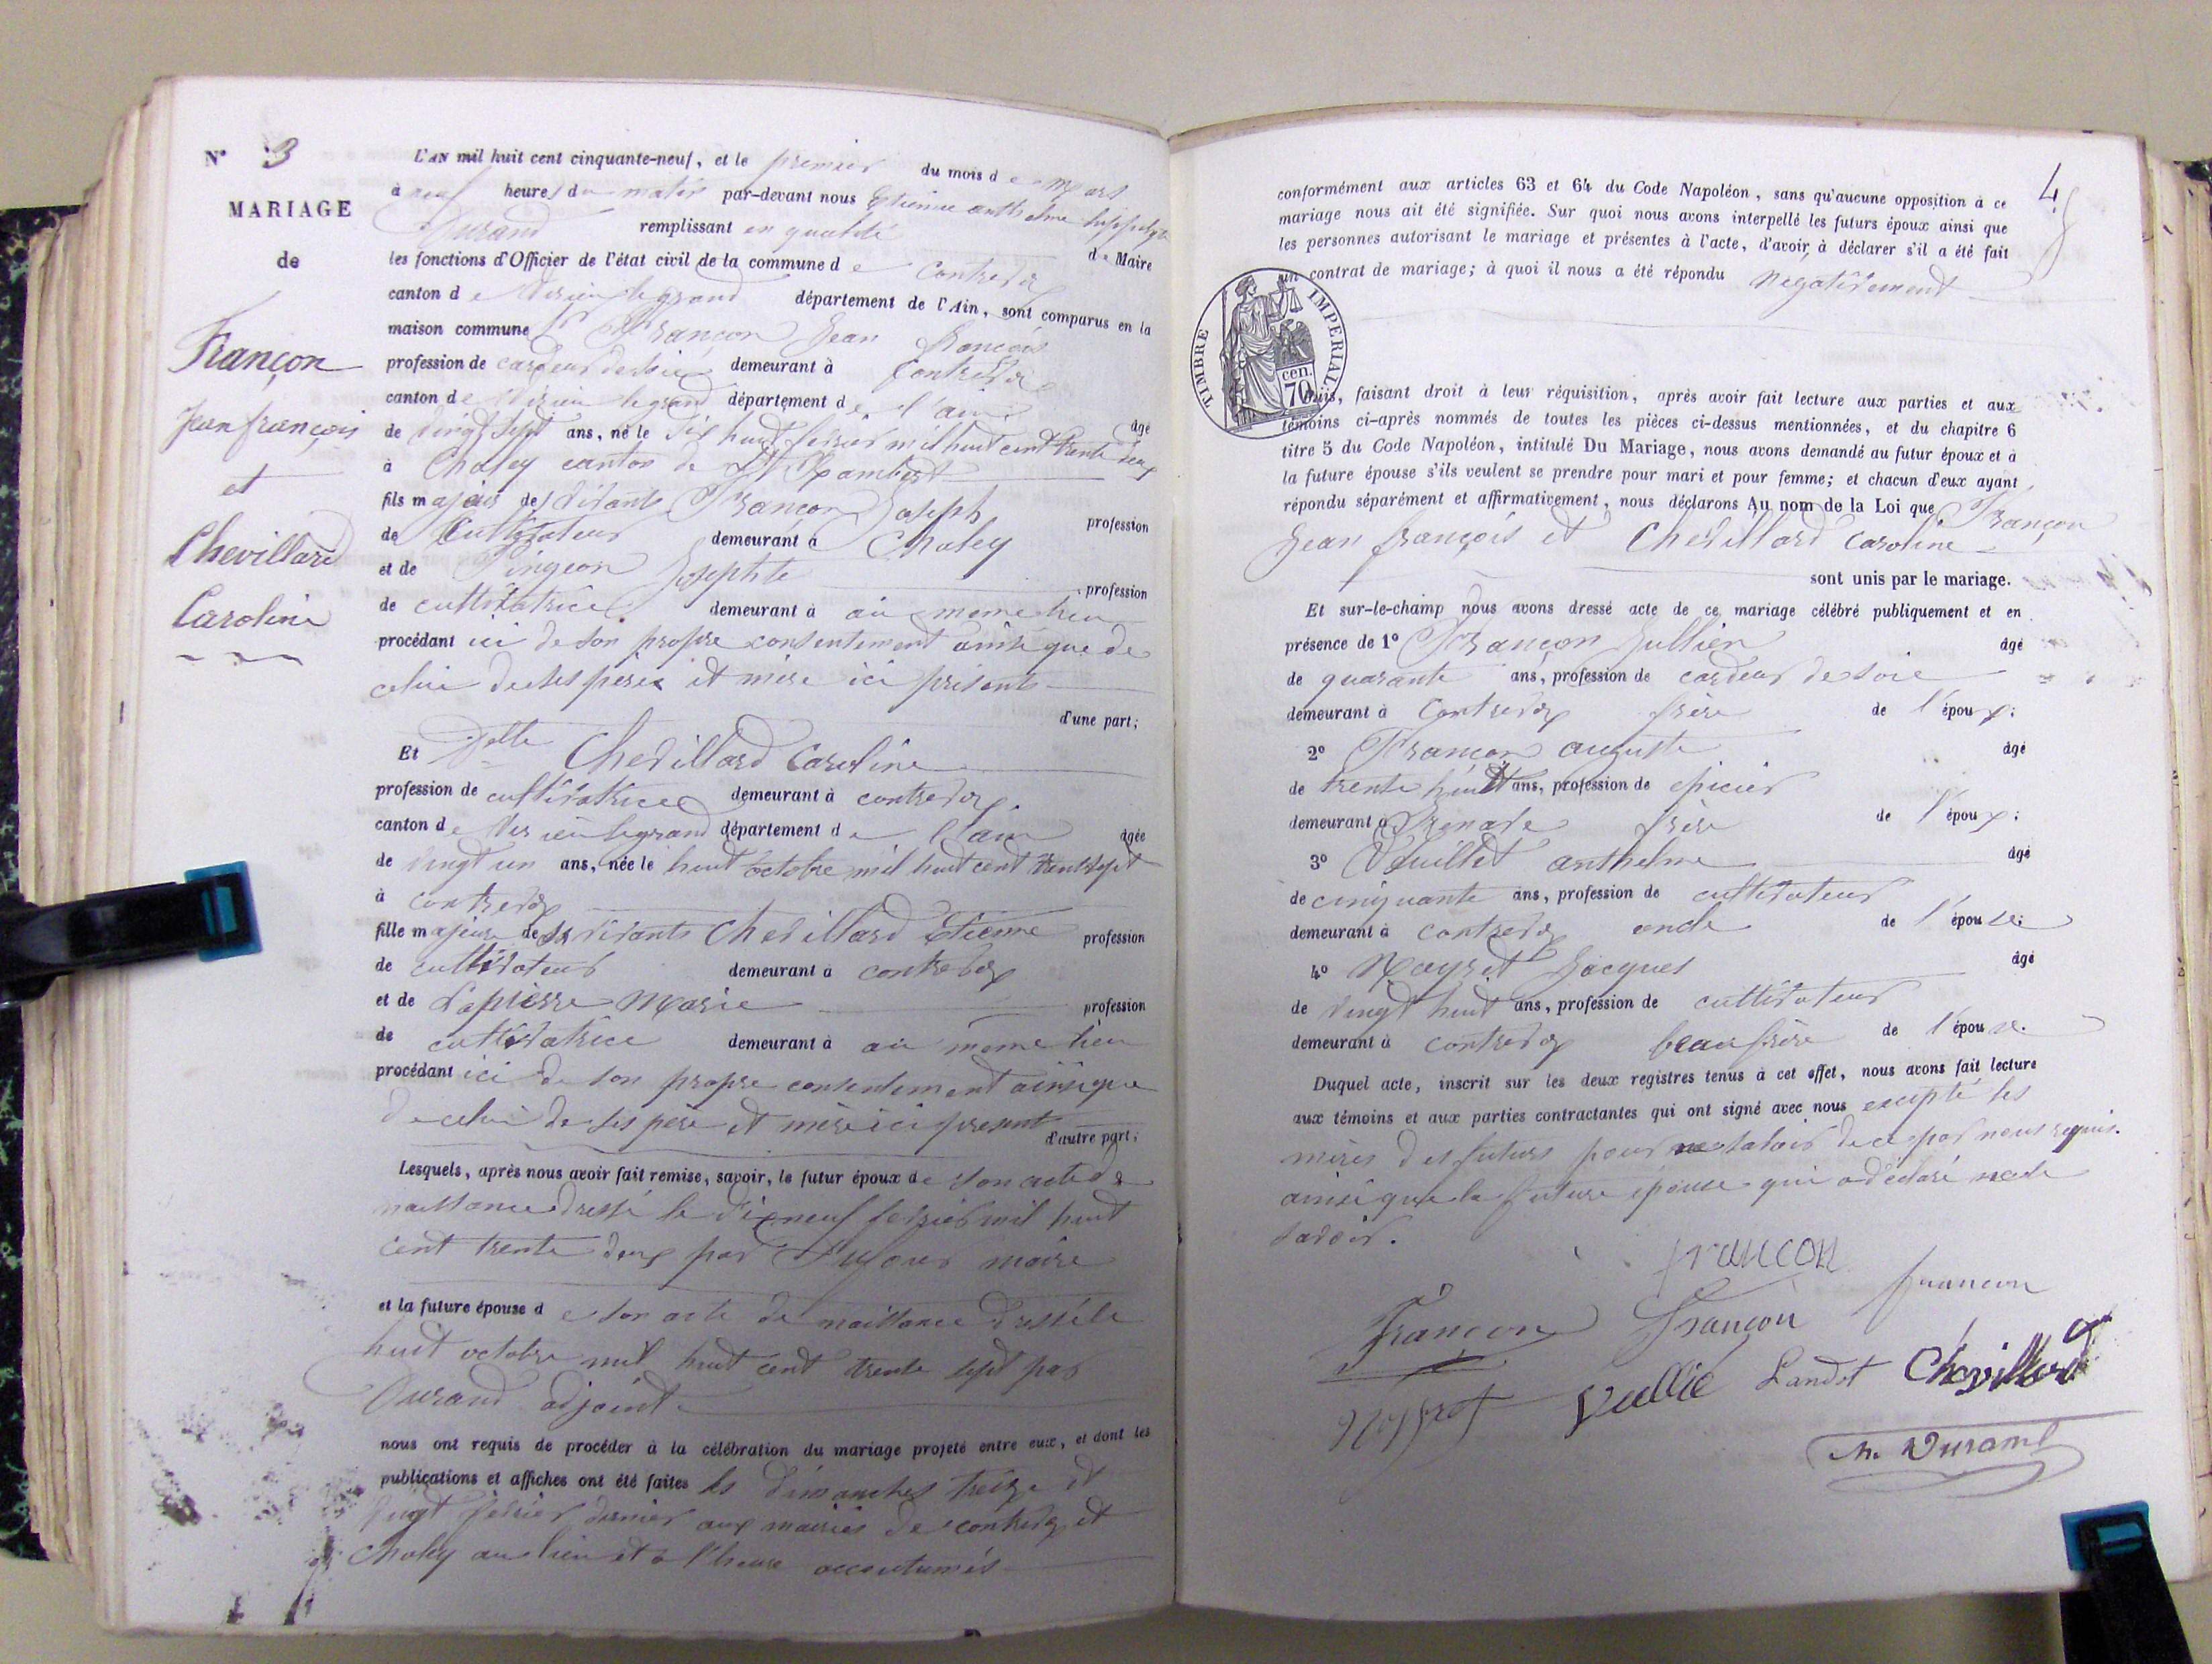 N° 3
MARIAGE
de
Françon
Jean françois
et
Chevillard
Caroline
L'AN mil huit cent cinquante-neuf, et le premier du mois de mars
à neuf heures du matin par-devant nous Etienne anthelme hippolyte
Durand remplissant en qualité de Maire
les fonctions d'Officier de l'état civil de la commune de Contrevoz
canton de Virieu le grand département de l'Ain, sont comparus en la
maison commune Sr Françon Jean François
profession de cardeur de soie demeurant à Contrevoz
canton de Virieu le grand département de l'ain âgé
de vingt sept ans, né le dix huit fevrier mil huit cent trente deux
à Chaley canton de St Rambert
fils majeur des vivants Françon Joseph profession
de Cultivateur demeurant à Chaley
et de Pingeon Josephte profession
de cultivatrice demeurant à au meme lieu
procédant ici de son propre consentement ainsi que de
celui de ses père et mère ici présents
d'une part;
Et Delle Chevillard Caroline
profession de cultivatrice demeurant à contrevoz
canton de Virieu le grand département de l'ain âgée
de vingt un ans, née le huit octobre mil huit cent trente sept
à contrevoz
fille majeure des vivants Chevillard Etienne profession
de cultivateur demeurant à contrevoz
et de Lapierre Marie profession
de cultivatrice demeurant à au meme lieu
procédant ici de son propre consentement ainsi que
de celui de ses père et mère ici present
d'autre part;
Lesquels, après nous avoir fait remise, savoir, le futur époux de son acte de
naissance dressé le dix neuf fevrier mil huit
cent trente deux par Dufour maire
et la future épouse de son acte de naissance dressé le
huit octobre mil huit cent trente sept par
Durand adjoint
nous ont requis de procéder à la célébration du mariage projeté entre eux, et dont les
publications et affiches ont été faites les dimanches treize et
vingt fevrier dernier aux mairies de contrevoz et
Chaley au lieu et à l'heure accoutumés
4
conformément aux articles 63 et 64 du Code Napoléon, sans qu'aucune opposition à ce
mariage nous ait été signifiée. Sur quoi nous avons interpellé les futurs époux ainsi que
les personnes autorisant le mariage et présentes à l'acte, d'avoir à déclarer s'il a été fait
un contrat de mariage; à quoi il nous a été répondu négativement
TIMBRE IMPERIAL
70 cen.
Puis, faisant droit à leur réquisition, après avoir fait lecture aux parties et aux
témoins ci-après nommés de toutes les pièces ci-dessus mentionnées, et du chapitre 6
titre 5 du Code Napoléon, intitulé Du Mariage, nous avons demandé au futur époux et à
la future épouse s'ils veulent se prendre pour mari et pour femme; et chacun d'eux ayant
répondu séparément et affirmativement, nous déclarons Au nom de la Loi que Françon
Jean françois et Chevillard Caroline
sont unis par le mariage.
Et sur-le-champ nous avons dressé acte de ce mariage célébré publiquement et en
présence de 1° Françon Jullien âgé
de quarante ans, profession de cardeur de soie
demeurant à Contrevoz frère de l'époux;
2° Françon auguste âgé
de trente huit ans, profession de epicier
demeurant à frère de l'époux;
3° Vuillet anthelme âgé
de cinquante ans, profession de cultivateur
demeurant à contrevoz oncle de l'épouse;
4° Jacques âgé
de vingt huit ans, profession de cultivateur
demeurant à contrevoz beaufrère de l'épouse.
Duquel acte, inscrit sur les deux registres tenus à cet effet, nous avons fait lecture
aux témoins et aux parties contractantes qui ont signé avec nous excepté les
mères des futurs pour ne savoir de ce par nous requis.
ainsi que la future épouse qui a déclaré ne le
savoir.
françon
Françon françon francon
Landot Chevillard
Durand